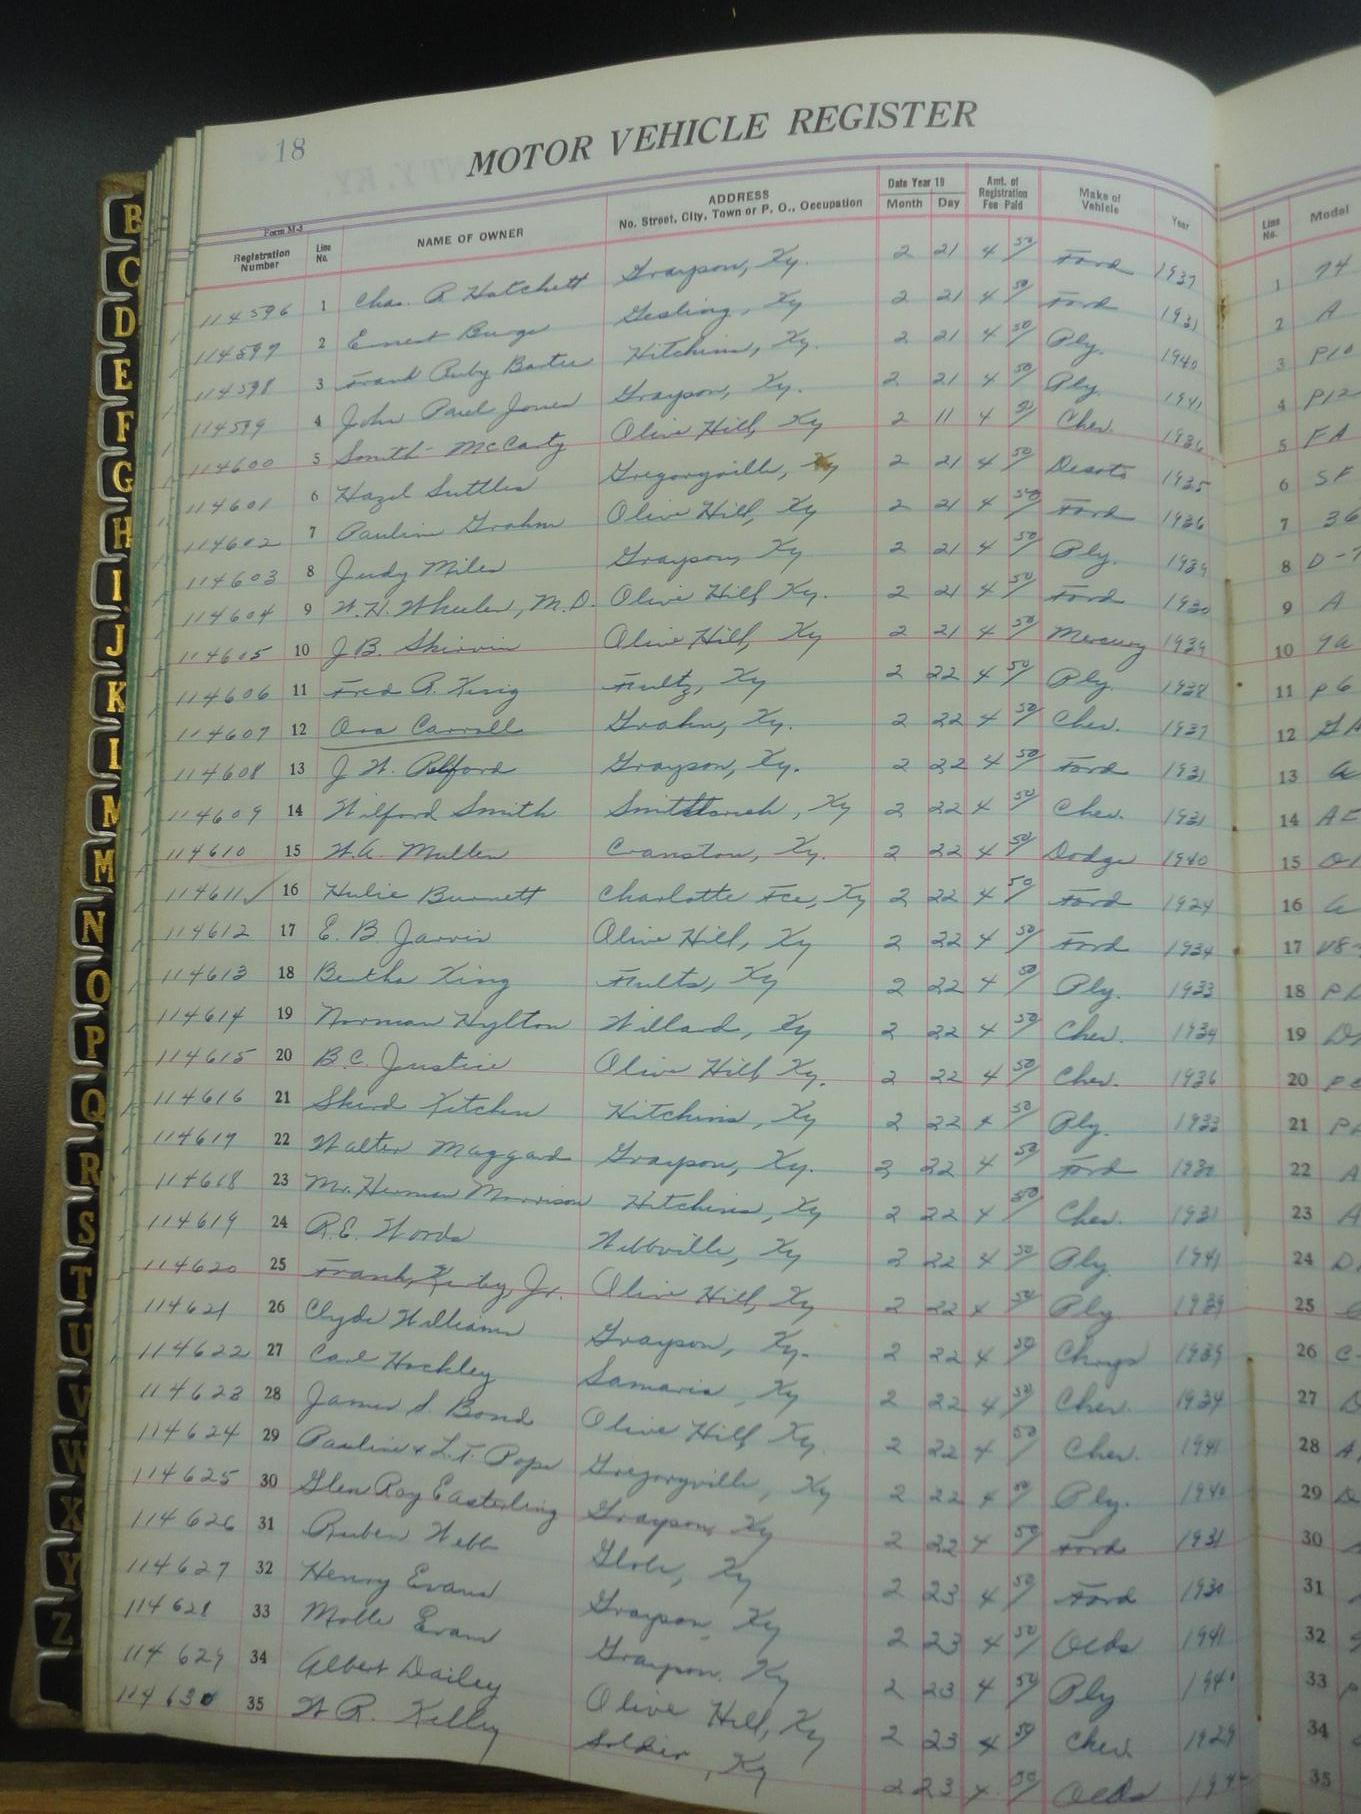 18
MOTOR VEHICLE REGISTER
Form M-3
Registration Number Line No. NAME OF OWNER ADDRESS No. Street, City, Town or P. O., Occupation Date Year 19 Month Day Amt. of Registration Fee Paid Make of Vehicle Year Line No. Model
114596 1 Chas. R Hatchett Grayson, Ky. 2 21 4 50/ Ford 1937 1 74
114597 2 Ernest Burge Gesling, Ky 2 21 4 50/ Ford 1931 2 A
114598 3 Frank Ruby Baxter Hitchins, Ky. 2 21 4 50/ Ply. 1940 3 P10
114599 4 John Paul Jones Grayson, Ky. 2 21 4 50/ Ply. 1941 4 P12
114600 5 Smith-McCarty Olive Hill, Ky 2 11 4 50/ Chev. 1936 5 FA
114601 6 Hazel Suttles Gregoryville, Ky 2 21 4 50/ Desoto 1935 6 SF
114602 7 Pauline Grahn Olive Hill, Ky 2 21 4 50/ Ford 1936 7 36
114603 8 Judy Miles Grayson, Ky 2 21 4 50/ Ply. 1939 8 D-
114604 9 W. H. Wheeler, M.D. Olive Hill, Ky. 2 21 4 50/ Ford 1930 9 A
114605 10 J B. Skirvin Olive Hill, Ky 2 21 4 50/ Mercury 1939 10 9a
114606 11 Fred R. King Fultz, Ky 2 22 4 50/ Ply. 1938 11 P6
114607 12 Ora Carroll Grahn, Ky. 2 22 4 50/ Chev. 1937 12 GA
114608 13 J W. Alford Grayson, Ky. 2 22 4 50/ Ford 1931 13 a
114609 14 Wilford Smith Ky 2 22 4 50/ Chev. 1931 14 AE
114610 15 W.A. Mullen Cranston, Ky. 2 22 4 50/ Dodge 1940 15
114611 ✓ 16 Hulie Burnett Charlotte Fce, Ky 2 22 4 50/ Ford 1924 16 a
114612 17 E. B Jarvis Olive Hill, Ky 2 22 4 50/ Ford 1934 17 V8-
114613 18 Bertha King Fults, Ky 2 22 4 50/ Ply. 1933 18
114614 19 Norman Hylton Willard, Ky 2 22 4 50/ Chev. 1934 19
114615 20 B.C. Justice Olive Hill, Ky. 2 22 4 50/ Chev. 1936 20
114616 21 Kitchen Hitchins, Ky 2 22 4 50/ Ply. 1933 21
114617 22 Walter Maggard Grayson, Ky. 2 22 4 50/ Ford 1930 22 A
114618 23 Mr. Herman Morrison Hitchins, Ky 2 22 4 50/ Chev. 1931 23 A
114619 24 R.E. Woods Webbville, Ky 2 22 4 50/ Ply. 1941 24
114620 25 Frank, Kirby, Jr. Olive Hill, Ky 2 22 4 50/ Ply. 1939 25
114621 26 Clyde Williams Grayson, Ky. 2 22 4 50/ Chrys 1939 26 C-
114622 27 Carl Hockley Samaria, Ky 2 22 4 50/ Chev. 1934 27
114623 28 James S. Bond Olive Hill, Ky. 2 22 4 50/ Chev. 1941 28
114624 29 Pauline & L.T. Pope Gregoryville, Ky 2 22 4 50/ Ply. 1940 29
114625 30 Glen Roy Easterling Grayson, Ky 2 22 4 50/ Ford 1931 30
114626 31 Ruben Webb Globe, Ky 2 23 4 50/ Ford 1930 31
114627 32 Henry Evans Grayson, Ky 2 23 4 50/ Olds 1941 32
114628 33 Evans Grayson, Ky 2 23 4 50/ Ply 1940 33
114629 34 Albert Dailey Olive Hill, Ky 2 23 4 50/ Chev. 1929 34
114630 35 W R. Kelley Soldier, Ky 2 23 4 50/ Olds 35
B
C
D
E
F
G
H
I
J
K
L
M
M
N
O
P
Q
R
S
T
U
V
W
X
Y
Z